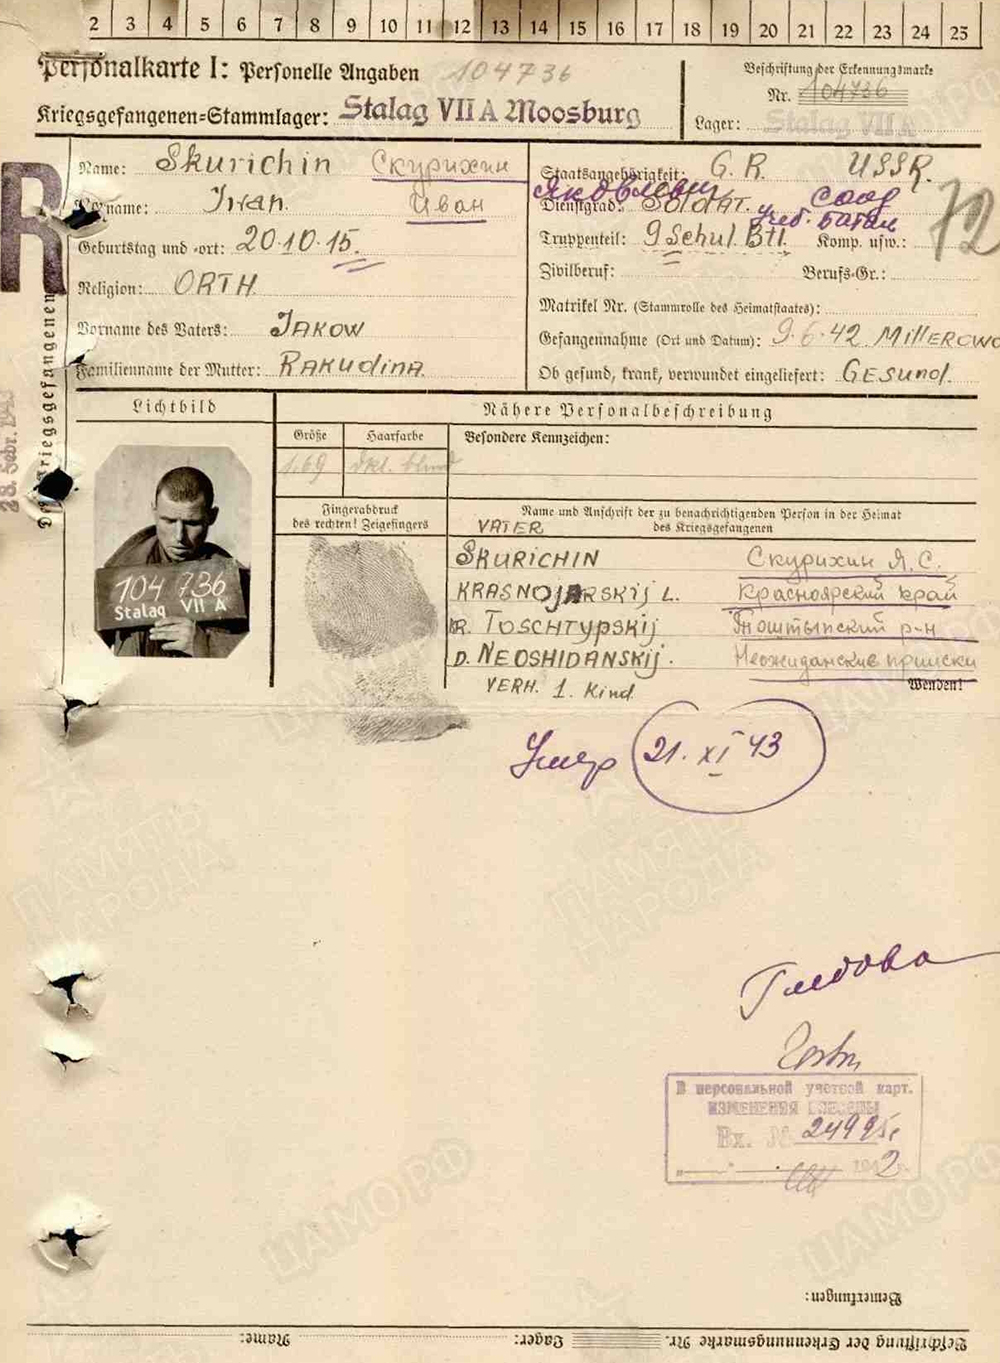 2 3 4 5 6 7 8 9 10 11 12 13 14 15 16 17 18 19 20 21 22 23 24 25
Personalkarte I: Personelle Angaben 104736
Kriegsgefangenen-Stammlager: Stalag VII A Moosburg
Beschriftung der Erkennungsmarke
Nr. 104736
Lager: Stalag VII A
R
Name: Skurichin Скурихин
Vorname: Iwan Иван
Geburtstag und -ort: 20.10.15.
Religion: ORTH.
Vorname des Vaters: JAKOW
Familienname der Mutter: RAKUdinA.
Staatsangehörigkeit: G.R. USSR.
Яковлевич
Dienstgrad: SOLDAT. солд
учеб. батал
Truppenteil: 9 Schul. Btl. Komp. usw.:
72
Zivilberuf: Berufs-Gr.:
Matrikel Nr. (Stammrolle des Heimatstaates):
Gefangennahme (Ort und Datum): 9.6.42. MillEROWO
Ob gesund, krank, verwundet eingeliefert: GEsund.
Des Kriegsgefangenen
28. Febr. 1943
Lichtbild
Nähere Personalbeschreibung
Größe Haarfarbe Besondere Kennzeichen:
1.69 dkl. blond
Fingerabdruck
des rechten! Zeigefingers
Name und Anschrift der zu benachrichtigenden Person in der Heimat
des Kriegsgefangenen
VATER
104 736
Stalag VII A
SKURICHIN Скурихин Я.С.
KRASNOJARSKij L. Красноярский край
R. TOSCHTYPSKIJ Таштыпский р-н
D. NEOSHIDANSKIJ. Неожиданские прииски
VERH. 1. Kind. Wenden!
Умер 21. XI 43
Глебова
В персональной учетной карт.
ИЗМЕНЕНИЯ ВНЕСЕНЫ
Вх. №
Bemerkungen:
Name: Lager: Beschriftung der Erkennungsmarke Nr.
ПАМЯТЬ НАРОДА
ПАМЯТЬ НАРОДА
ЦАМО РФ
ЦАМО РФ